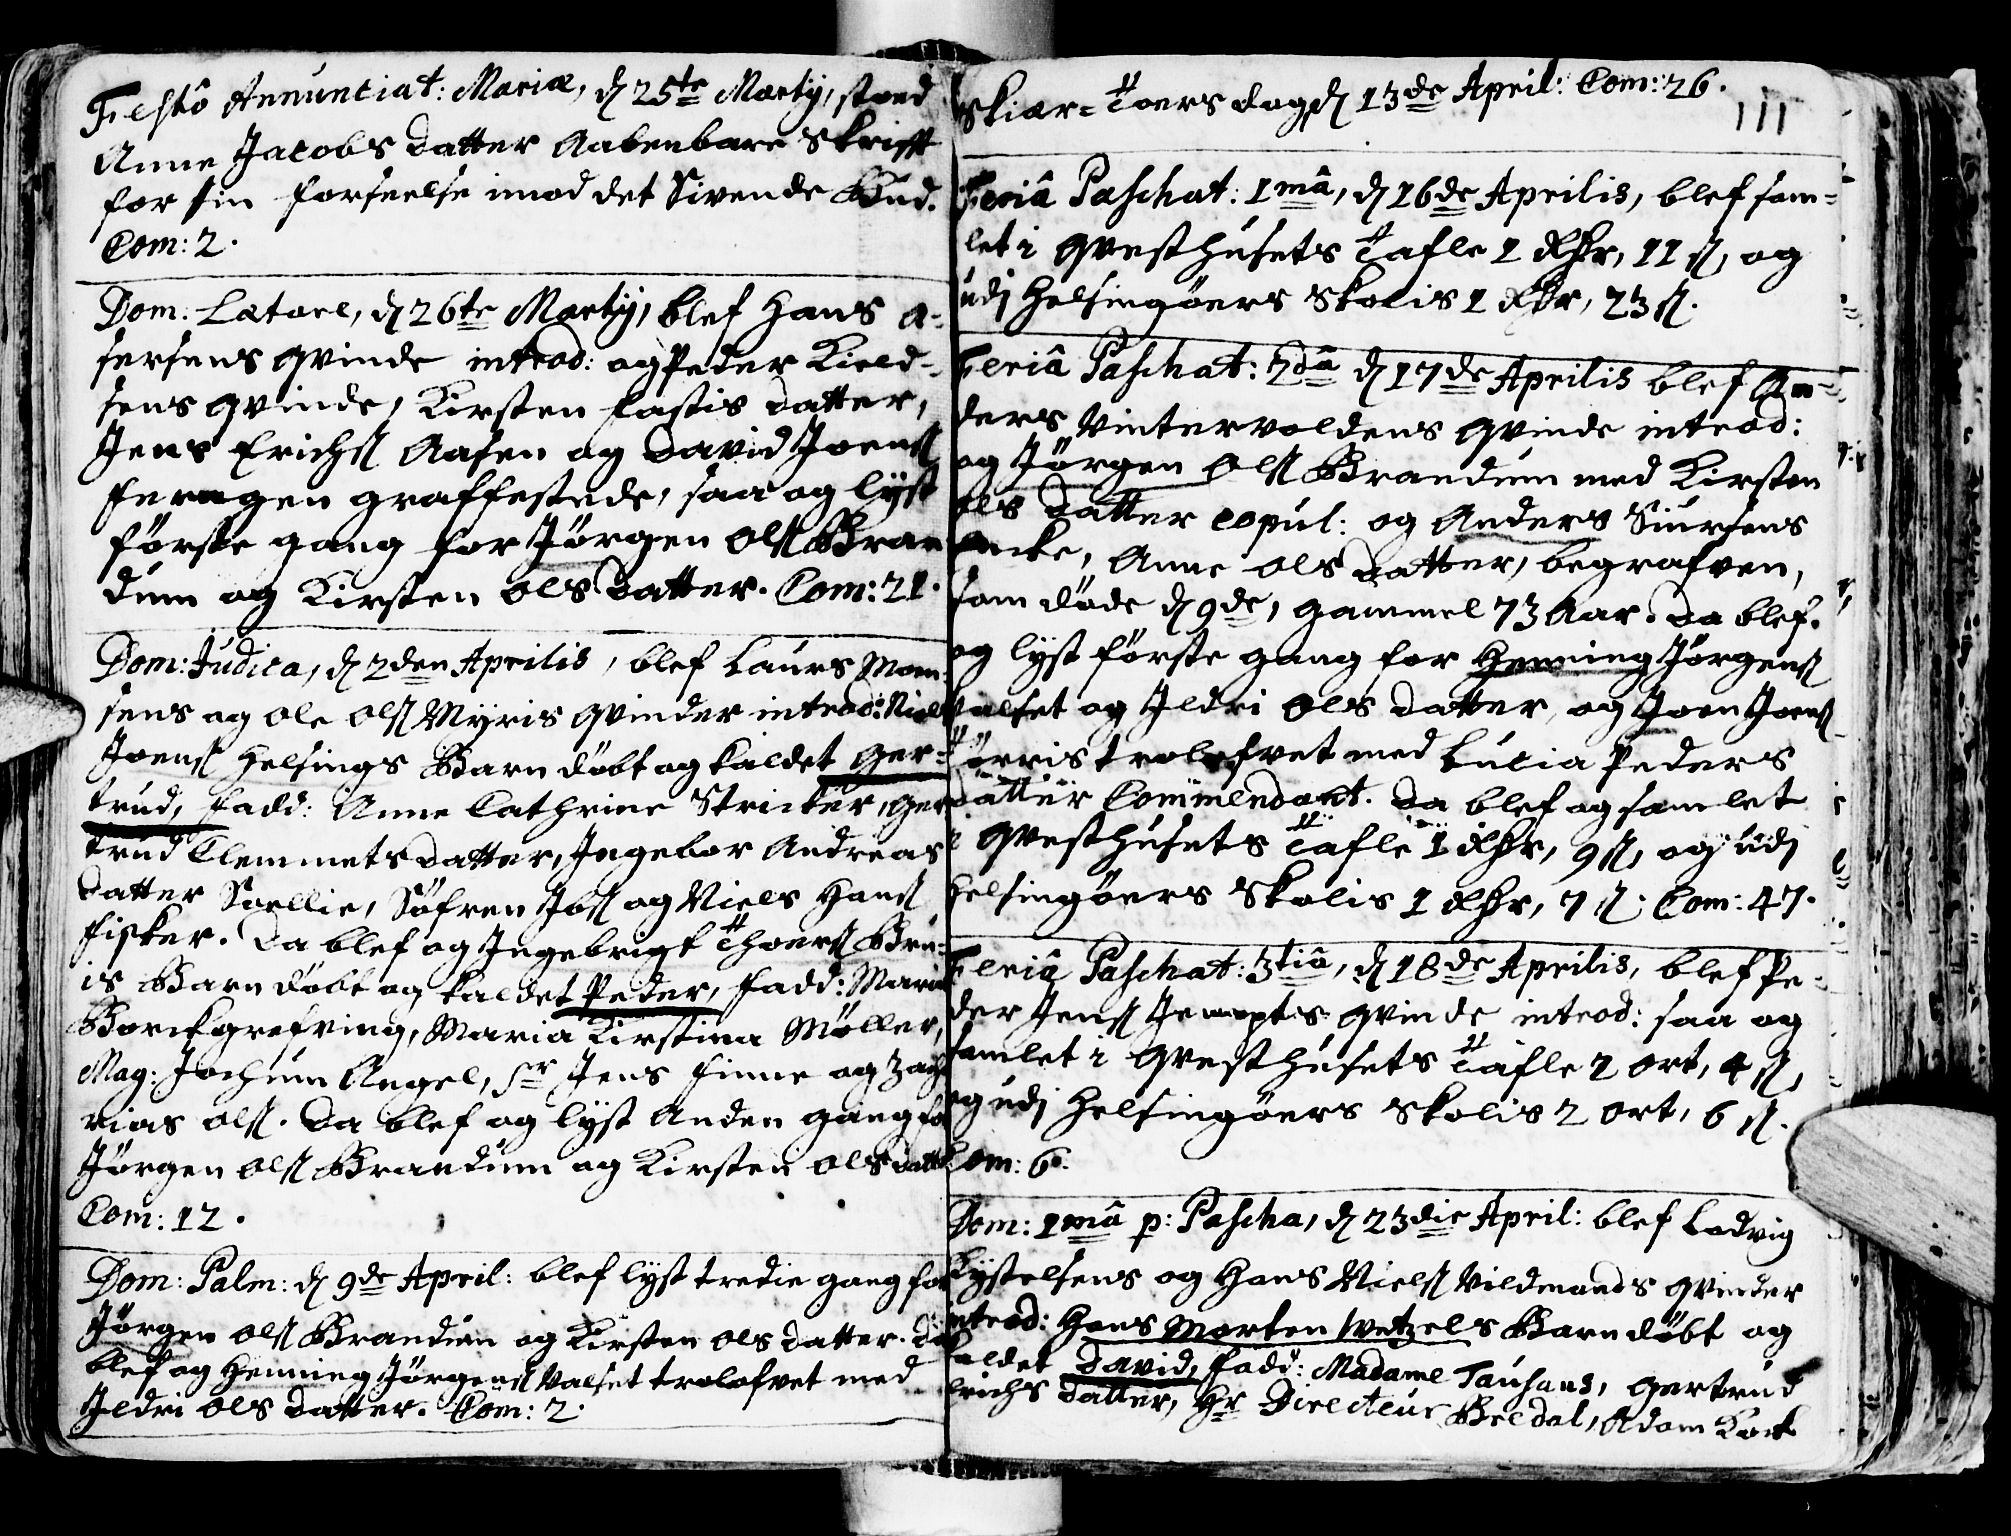 Festô Annuntiat: Mariæ, d 25te Martij, stoed
Anne Jacobs datter Aabenbare Skrifft
for sin forseelse imod det Sivende Bud.
Com: 2.
Dom: Lætare, d 26te Martij, blef Hans A-
sersens qvinde introd: og Peder Kield-
sens qvinde, Kirsten Fastis datter,
Jens Erichs Aasen og David Joens
Feragen graffestede, saa og lyst
første gang for Jørgen Ols Bran
dum og Kirsten Ols datter. Com: 21.
Dom: Judica, d 2den Aprilis, blef Laurs Mom-
sens og Ole Ols Myris qvinder introd: Niels
Joens Helsings Barn döbt og kaldet Ger-
trud, fadd: Anne Cathrine Stricker, Ger
trud Clemmets datter, Ingebor Andreas
datter Soellie, Söfren Ibs og Niels Hans
Fisker. Da blef og Ingebrigt Thoers Bru-
is Barn döbt og kaldet Peder, fadd: Maria
Borchgrefving, Maria Kirstina Møller,
Mag: Jochum Angel, Sr Jens Finne og Zach
rias Ols. Da blef og lyst Anden gang for
Jørgen Ols Brandum og Kirsten Ols datt
Com: 12.
Dom: Palm: d 9de April: blef lyst tredie gang for
Jørgen Ols Brandum og Kirsten Ols datter. Da
blef og Henning Jørgens Valset trolofvet med
Ildri Ols datter. Com: 2.
Skiær-Toersdag, d 13de April: Com: 26.
111
Feriâ Paschat: 1mâ, d 16de Aprilis, blef sam-
let i Qvesthusets Tafle 1 Rdr, 11 s, og
udj Helsingöers Skolis 1 Rdr, 23 s.
Feriâ Paschat: 2dâ d 17de Aprilis blef An-
ders Vintervoldens qvinde introd:
og Jörgen Ols Brandum med Kirsten
Ols datter copul: og Anders Siursens
Encke, Anne Ols datter, begrafven,
som døde d 9de, gammel 73 Aar. Da blef
og lyst første gang for Henning Jørgens
Valset og Ildri Ols datter, og Joen Joens
Törris trolofvet med Lucia Peders
datter Commendant. Da blef og samlet
i Qvesthusets Tafle 1 Rdr, 9 s, og udj
Helsingöers Skolis 1 Rdr, 7 s. Com: 47.
Feriâ Paschat: 3tiâ, d 18de Aprilis, blef Pe-
der Jens Jempts qvinde introd: saa og
samlet i Qvesthusets Tafle 2 ort, 4 s,
og udj Helsingöers Skolis 2 ort, 6 s.
Com: 6.
Dom: 1mâ p: Pascha, d 23die April: blef Lodvig
Kystelsens og Hans Niels Vildmands qvinder
introd: Hans Morten Wetzels Barn döbt og
kaldet David, fadd: Madame Tausans, Gertrud
Erichs datter, Hr Directeur Bredal, Adam Kort